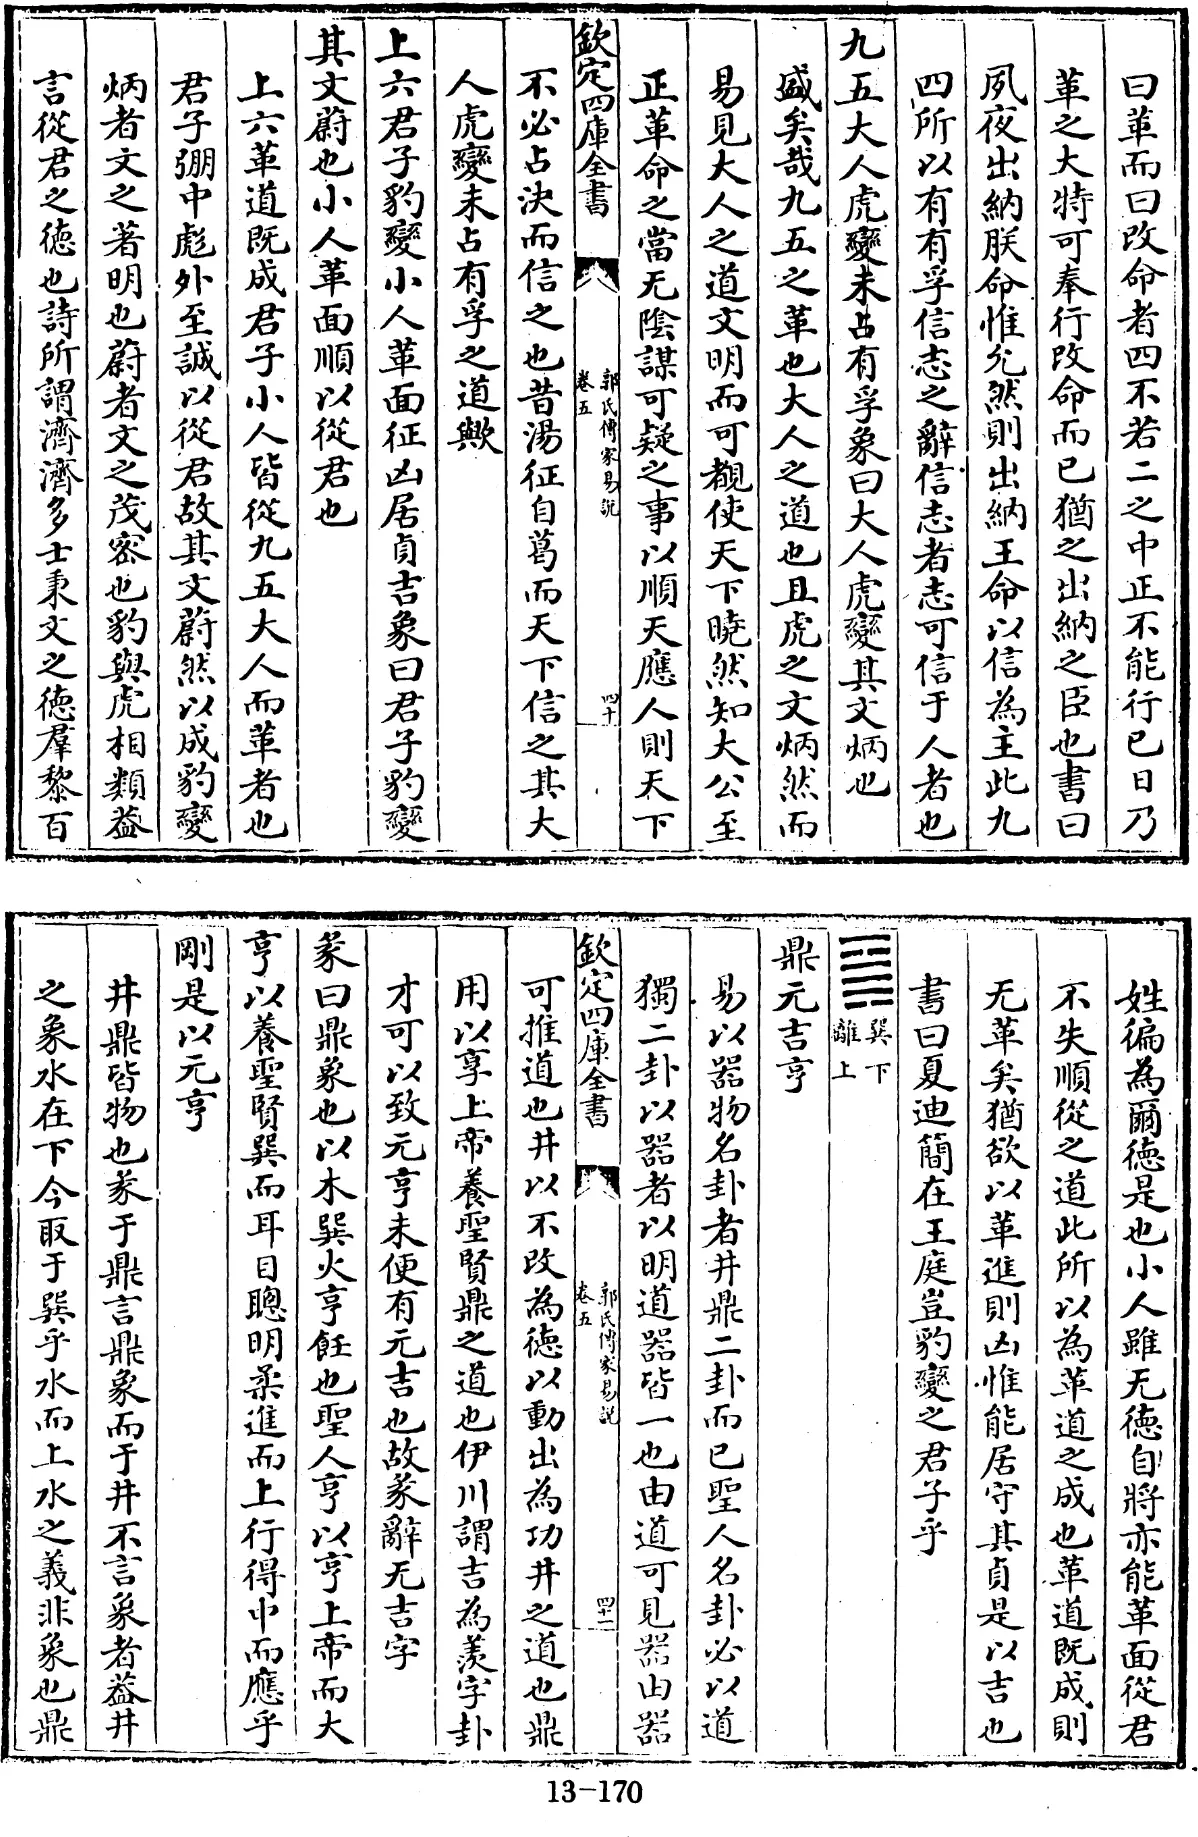 曰革而曰改命者四不若二之中正不能行已日乃
革之大特可奉行改命而已猶之出納之臣也書曰
夙夜出納朕命惟允然則出納王命以信為主此九
四所以有有孚信志之辭信志者志可信于人者也
九五大人虎變未占有孚象曰大人虎變其文炳也
盛矣哉九五之革也大人之道也且虎之文炳然而
易見大人之道文明而可覩使天下曉然知大公至
正革命之當无陰謀可疑之事以順天應人則天下
欽定四庫全書
郭氏傳家易說
卷五
四十
不必占決而信之也昔湯征自葛而天下信之其大
人虎變未占有孚之道歟
上六君子豹變小人革面征凶居貞吉象曰君子豹變
其文蔚也小人革面順以從君也
上六革道既成君子小人皆從九五大人而革者也
君子弸中彪外至誠以從君故其文蔚然以成豹變
炳者文之著明也蔚者文之茂密也豹與虎相類葢
言從君之德也詩所謂濟濟多士秉文之德羣黎百
姓徧為爾德是也小人雖无德自將亦能革面從君
不失順從之道此所以為革道之成也革道既成則
无革矣猶欲以革進則凶惟能居守其貞是以吉也
書曰夏迪簡在王庭豈豹變之君子乎
䷱巽下
離上
鼎元吉亨
易以器物名卦者井鼎二卦而已聖人名卦必以道
獨二卦以器者以明道器皆一也由道可見器由器
欽定四庫全書
郭氏傳家易說
卷五
四十一
可推道也井以不改為德以動出為功井之道也鼎
用以享上帝養聖賢鼎之道也伊川謂吉為羨字卦
才可以致元亨未便有元吉也故彖辭无吉字
彖曰鼎象也以木巽火亨飪也聖人亨以亨上帝而大
亨以養聖賢巽而耳目聰明柔進而上行得中而應乎
剛是以元亨
井鼎皆物也彖于鼎言鼎象而于井不言象者葢井
之象水在下今取于巽乎水而上水之義非象也鼎
13-170